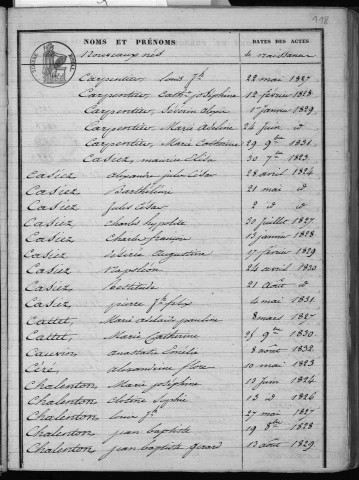 118
NOMS ET PRÉNOMS DATES DES ACTES
Nouveaux nés de naissance
Carpentier, Louis Jh 22 mai 1827
Carpentier, Cathne joséphine 12 février 1828
Carpentier, Séverin 1er janvier 1829
Carpentier, Marie Adeline 24 juin id
Carpentier, Marie Catherine 29 9bre 1831
Casiez, maurice Elisé 30 7bre 1823
Casiez alexandre jules César 28 avril 1824
Casiez Barthélémi 21 mai id
Casiez Jules César 2 id id
Casiez Charles hypolite 20 juillet 1827
Casiez Charles françois 13 janvier 1828
Casiez Valérie Augustine 17 février 1829
Casiez Napoléon 24 avril 1830
Casiez Bertitude 21 Août id
Casiez pierre Jh felix 4 mai 1831
Cattet, Marie adelaïde pauline 8 mars 1827
Cattet, Marie Catherine 25 9bre 1830
Cauvin anastasie 8 août 1832
Céré, alexandrine flore 10 mai 1823
Chalenton, Marie joséphine 10 juin 1824
Chalenton clotaire Sophie 13 id 1826
Chalenton Louis Jh 27 mai 1827
Chalenton jean baptiste 19 8bre 1828
Chalenton jean baptiste 12 août 1829